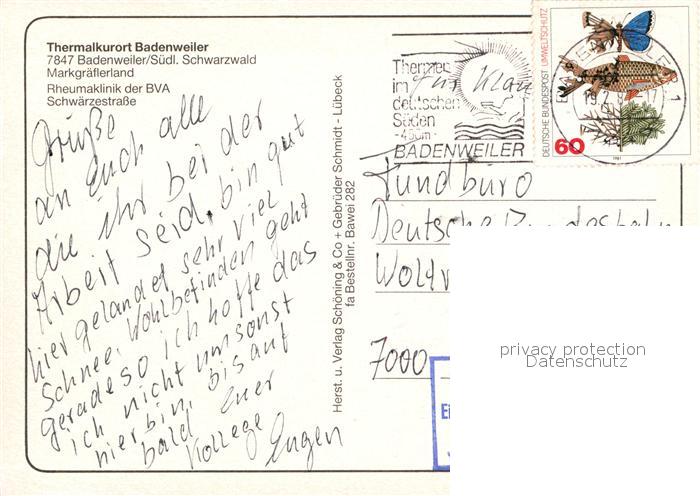 Thermalkurort Badenweiler
7847 Badenweiler/Südl. Schwarzwald
Markgräflerland
Rheumaklinik der BVA
Schwärzestraße
Grüße
an Euch alle
die ihr bei der
Arbeit seid, bin gut
hier gelandet sehr viel
Schnee, Wohlbefinden geht
gerade so ich hoffe das
ich nicht umsonst
hier bin, bis auf
bald Euer
Kollege Eugen
Herst. u. Verlag Schöning & Co + Gebrüder Schmidt - Lübeck
fa Bestellnr. Bawei 282
Thermen
im
deutschen
Süden
-450m-
BADENWEILER
für Klau
DEUTSCHE BUNDESPOST UMWELTSCHUTZ
60
1981
Fundbüro
Deutsche Bundesbahn
7000
privacy protection
Datenschutz